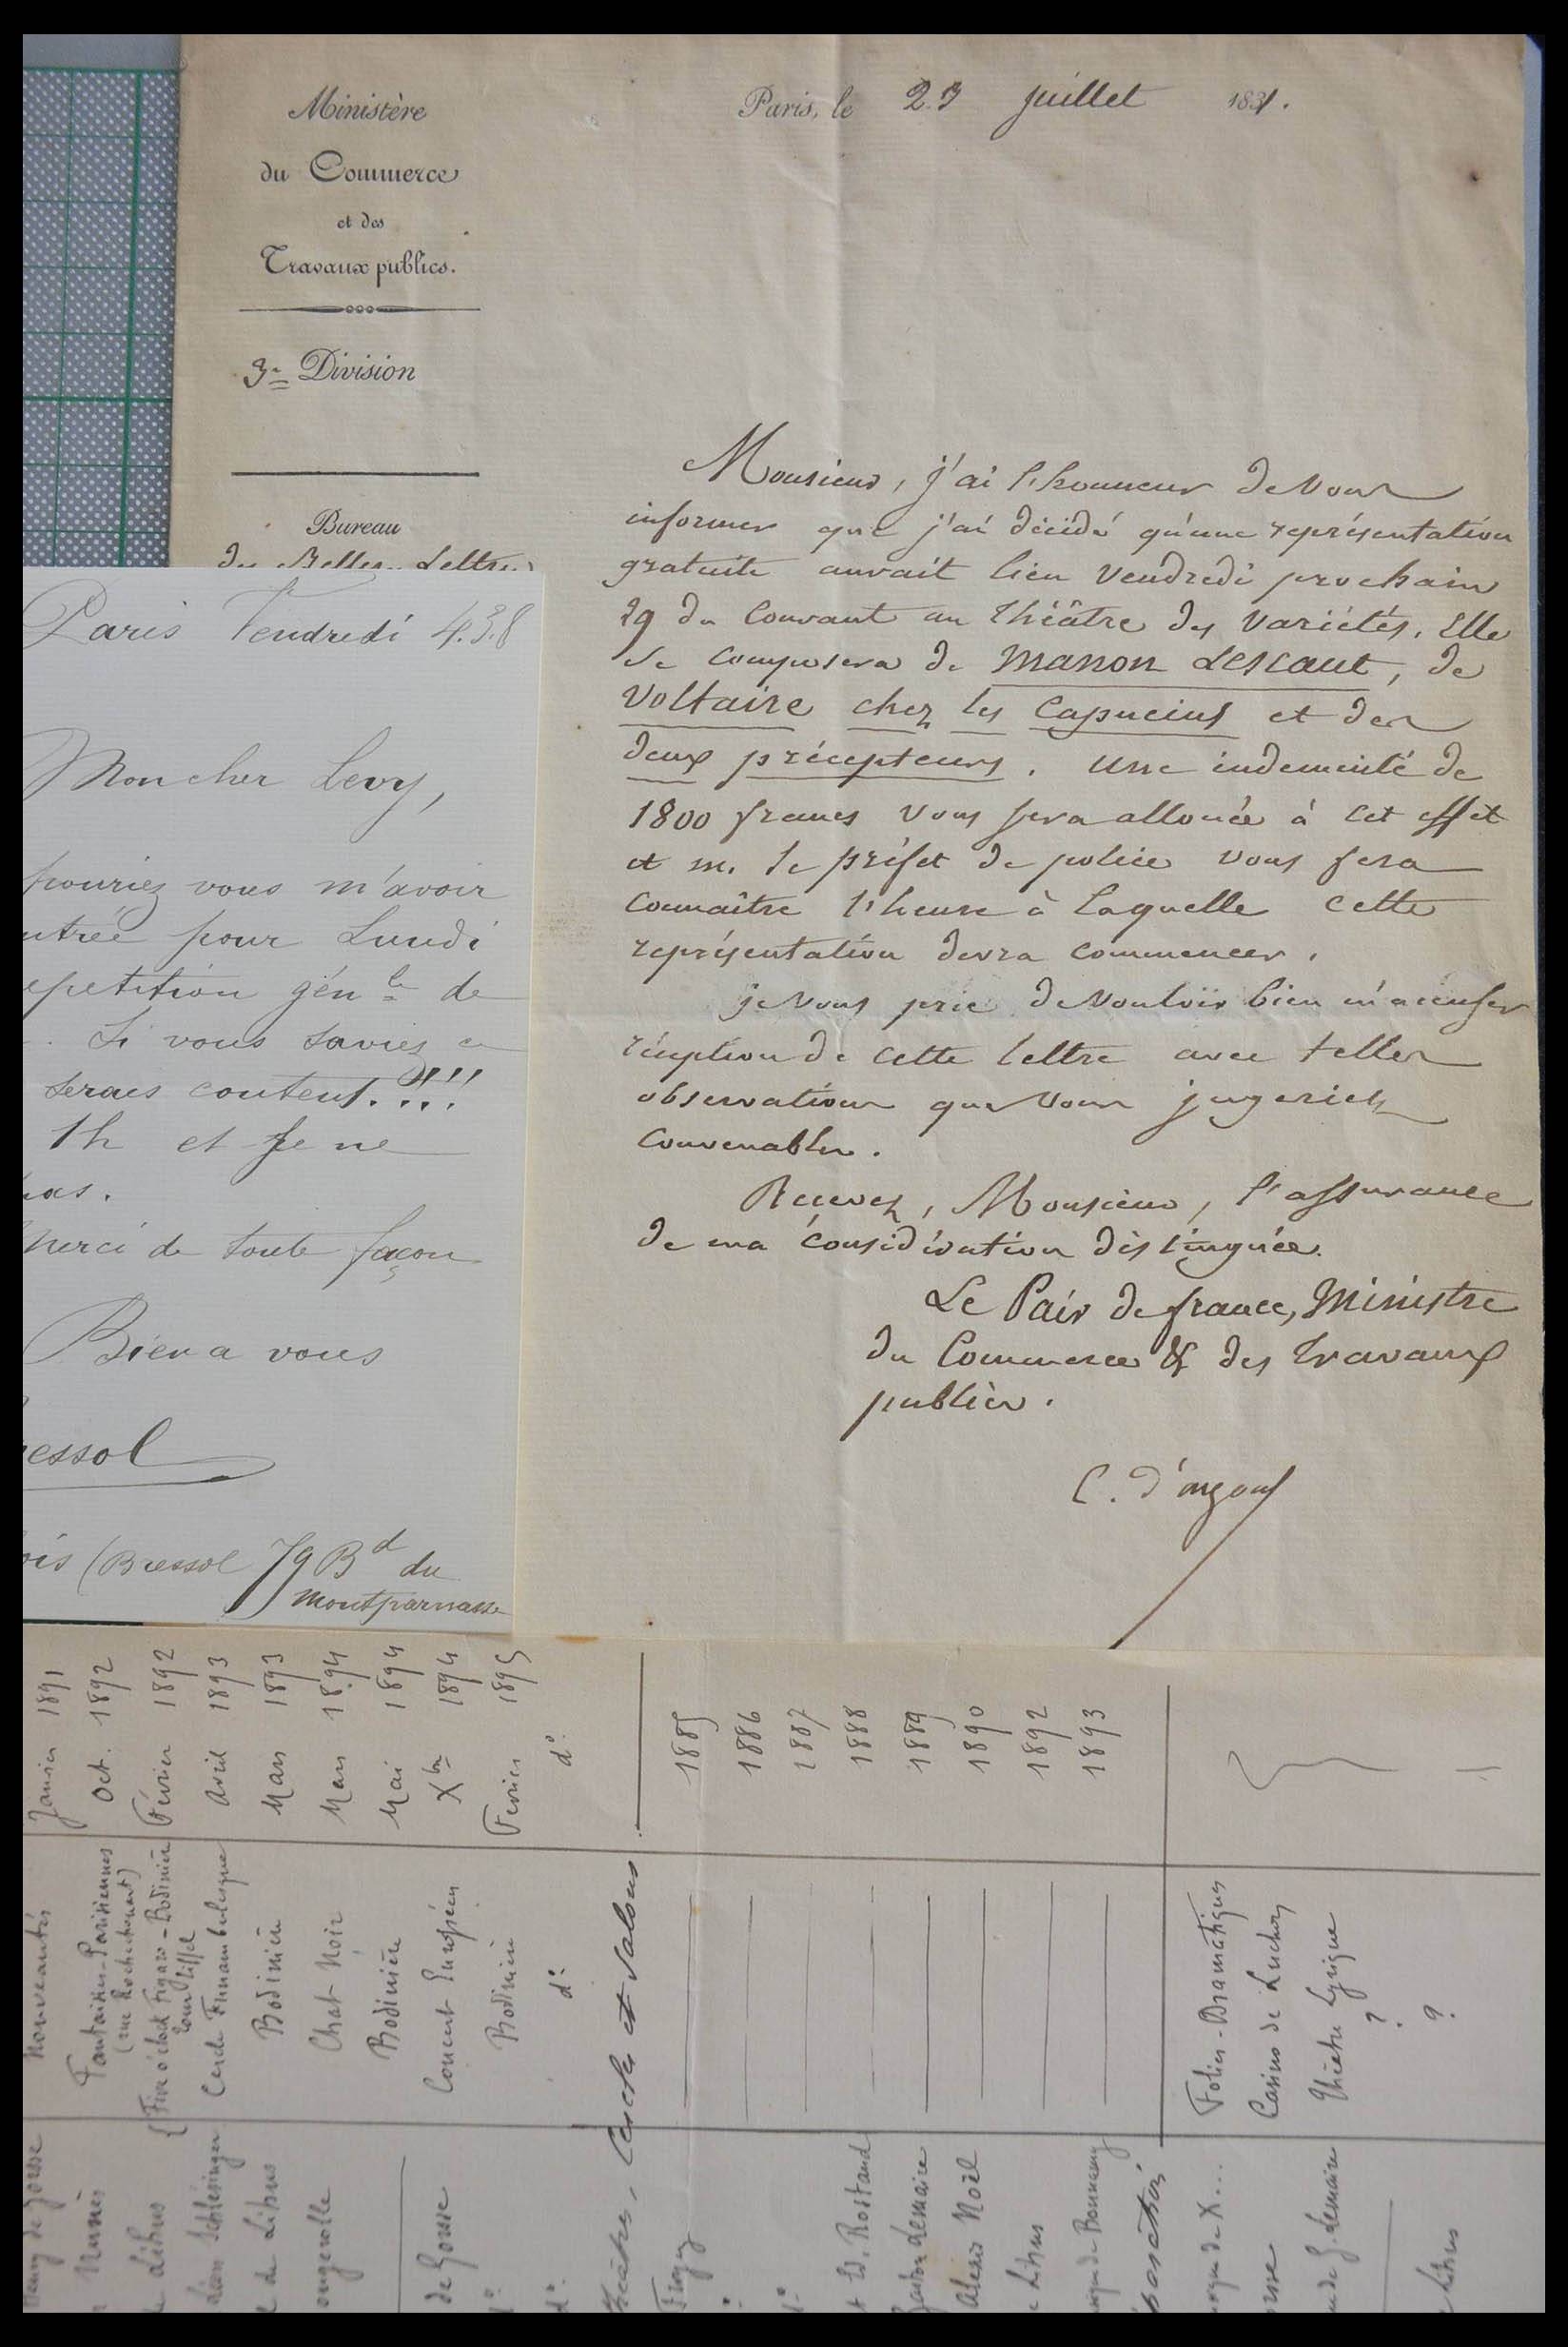 Ministère
du Commerce
et des
Travaux publics.
3e Division
Bureau
des Belles-Lettres
Paris, le 23 juillet 1831.
Monsieur, j'ai l'honneur de vous
informer que j'ai décidé qu'une représentation
gratuite aurait lieu vendredi prochain
29 du courant au théâtre des variétés. Elle
se composera de Manon Lescaut, de
Voltaire chez les Capucins et des
deux précepteurs. Une indemnité de
1800 francs vous sera allouée à cet effet
et m. le préfet de police vous fera
connaître l'heure à laquelle cette
représentation devra commencer.
je vous prie de vouloir bien m'accuser
réception de cette lettre avec telles
observations que vous jugeriez
convenables.
Recevez, Monsieur, l'assurance
de ma considération distinguée.
Le Pair de france, Ministre
du Commerce & des travaux
publics.
C. d'argout
Paris Vendredi 4.3.8
Mon cher Levy,
pouriez vous m'avoir
ntrée pour Lundi
epetition génle de
Si vous saviez
serais content.!!!!
1h et je ne
pas.
Merci de toute façon
Bien a vous
essol
ois (Bressol 79 Bd du
Montparnasse
Henry de Gorsse Nouveautés Janvier 1891
Nunès Fantaisies-Parisiennes Oct. 1892
(rue Rochechouart)
de Lihus Five o'clock Figaro - Bodinière Février 1892
Tour Eiffel
Schlésinger Cercle Funambulesque Avril 1893
de Lihus Bodinière Mars 1893
ougerolle Chat Noir Mars 1894
Bodinière Mai 1894
de Gorsse Concert Européen Xbre 1894
d° Bodinière Février 1895
d° d° d°
Théâtres, Cercles et Salons.
Frogy 1885
1886
d° 1887
Ed. Rostand 1888
Gaston Lemaire 1889
Alexis Noël 1890
Lihus 1892
de Bonnamy 1893
de X... Folies-Dramatiques
orsse Casino de Luchon
de G. Lemaire Théâtre Lyrique
?
Lihus ?